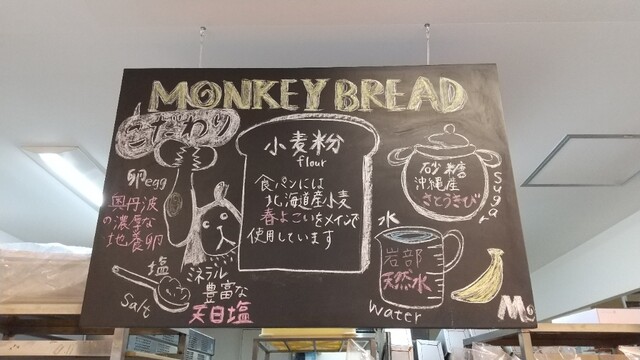 MONKEY BREAD
こだわり
卵egg
奥丹波
の濃厚な
地養卵
塩
Salt
ミネラル
豊富な
天日塩
小麦粉
flour
食パンには
北海道産小麦
春よこいをメインで
使用しています
砂糖
沖縄産
さとうきび
Sugar
水
岩部
天然水
Water